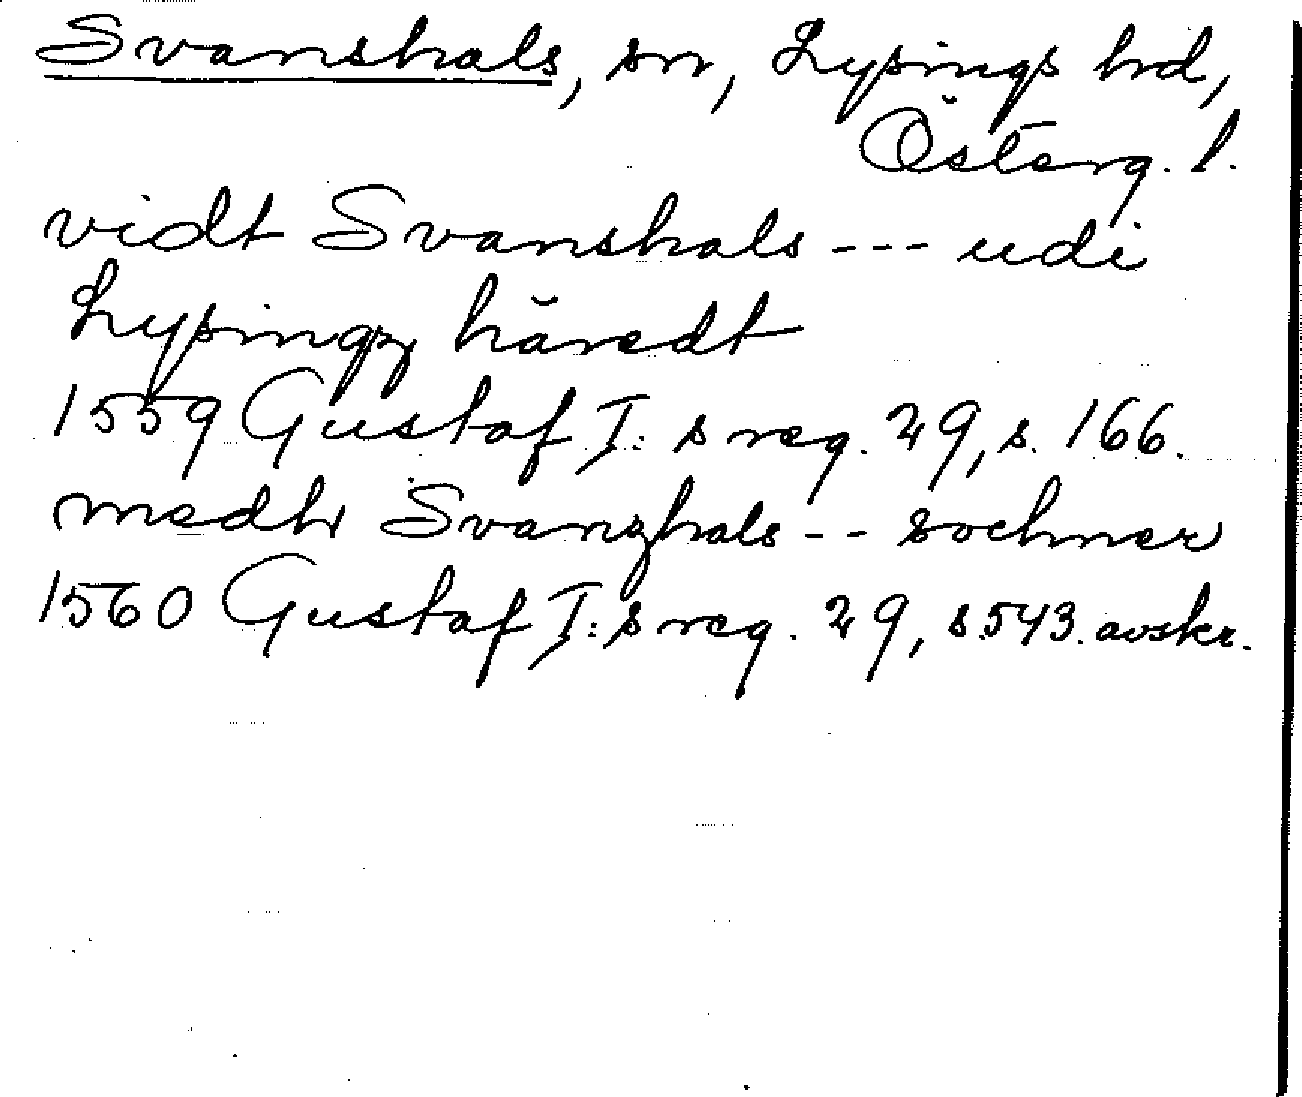 Svanshals, sn, Lysings hd,
Österg. l.
vidt Svanshals --- udi
Lysingz häredt
1559 Gustaf I:s reg. 29, s. 166.
medh Svanzhals -- sochner
1560 Gustaf I:s reg. 29, s. 543. avskr.